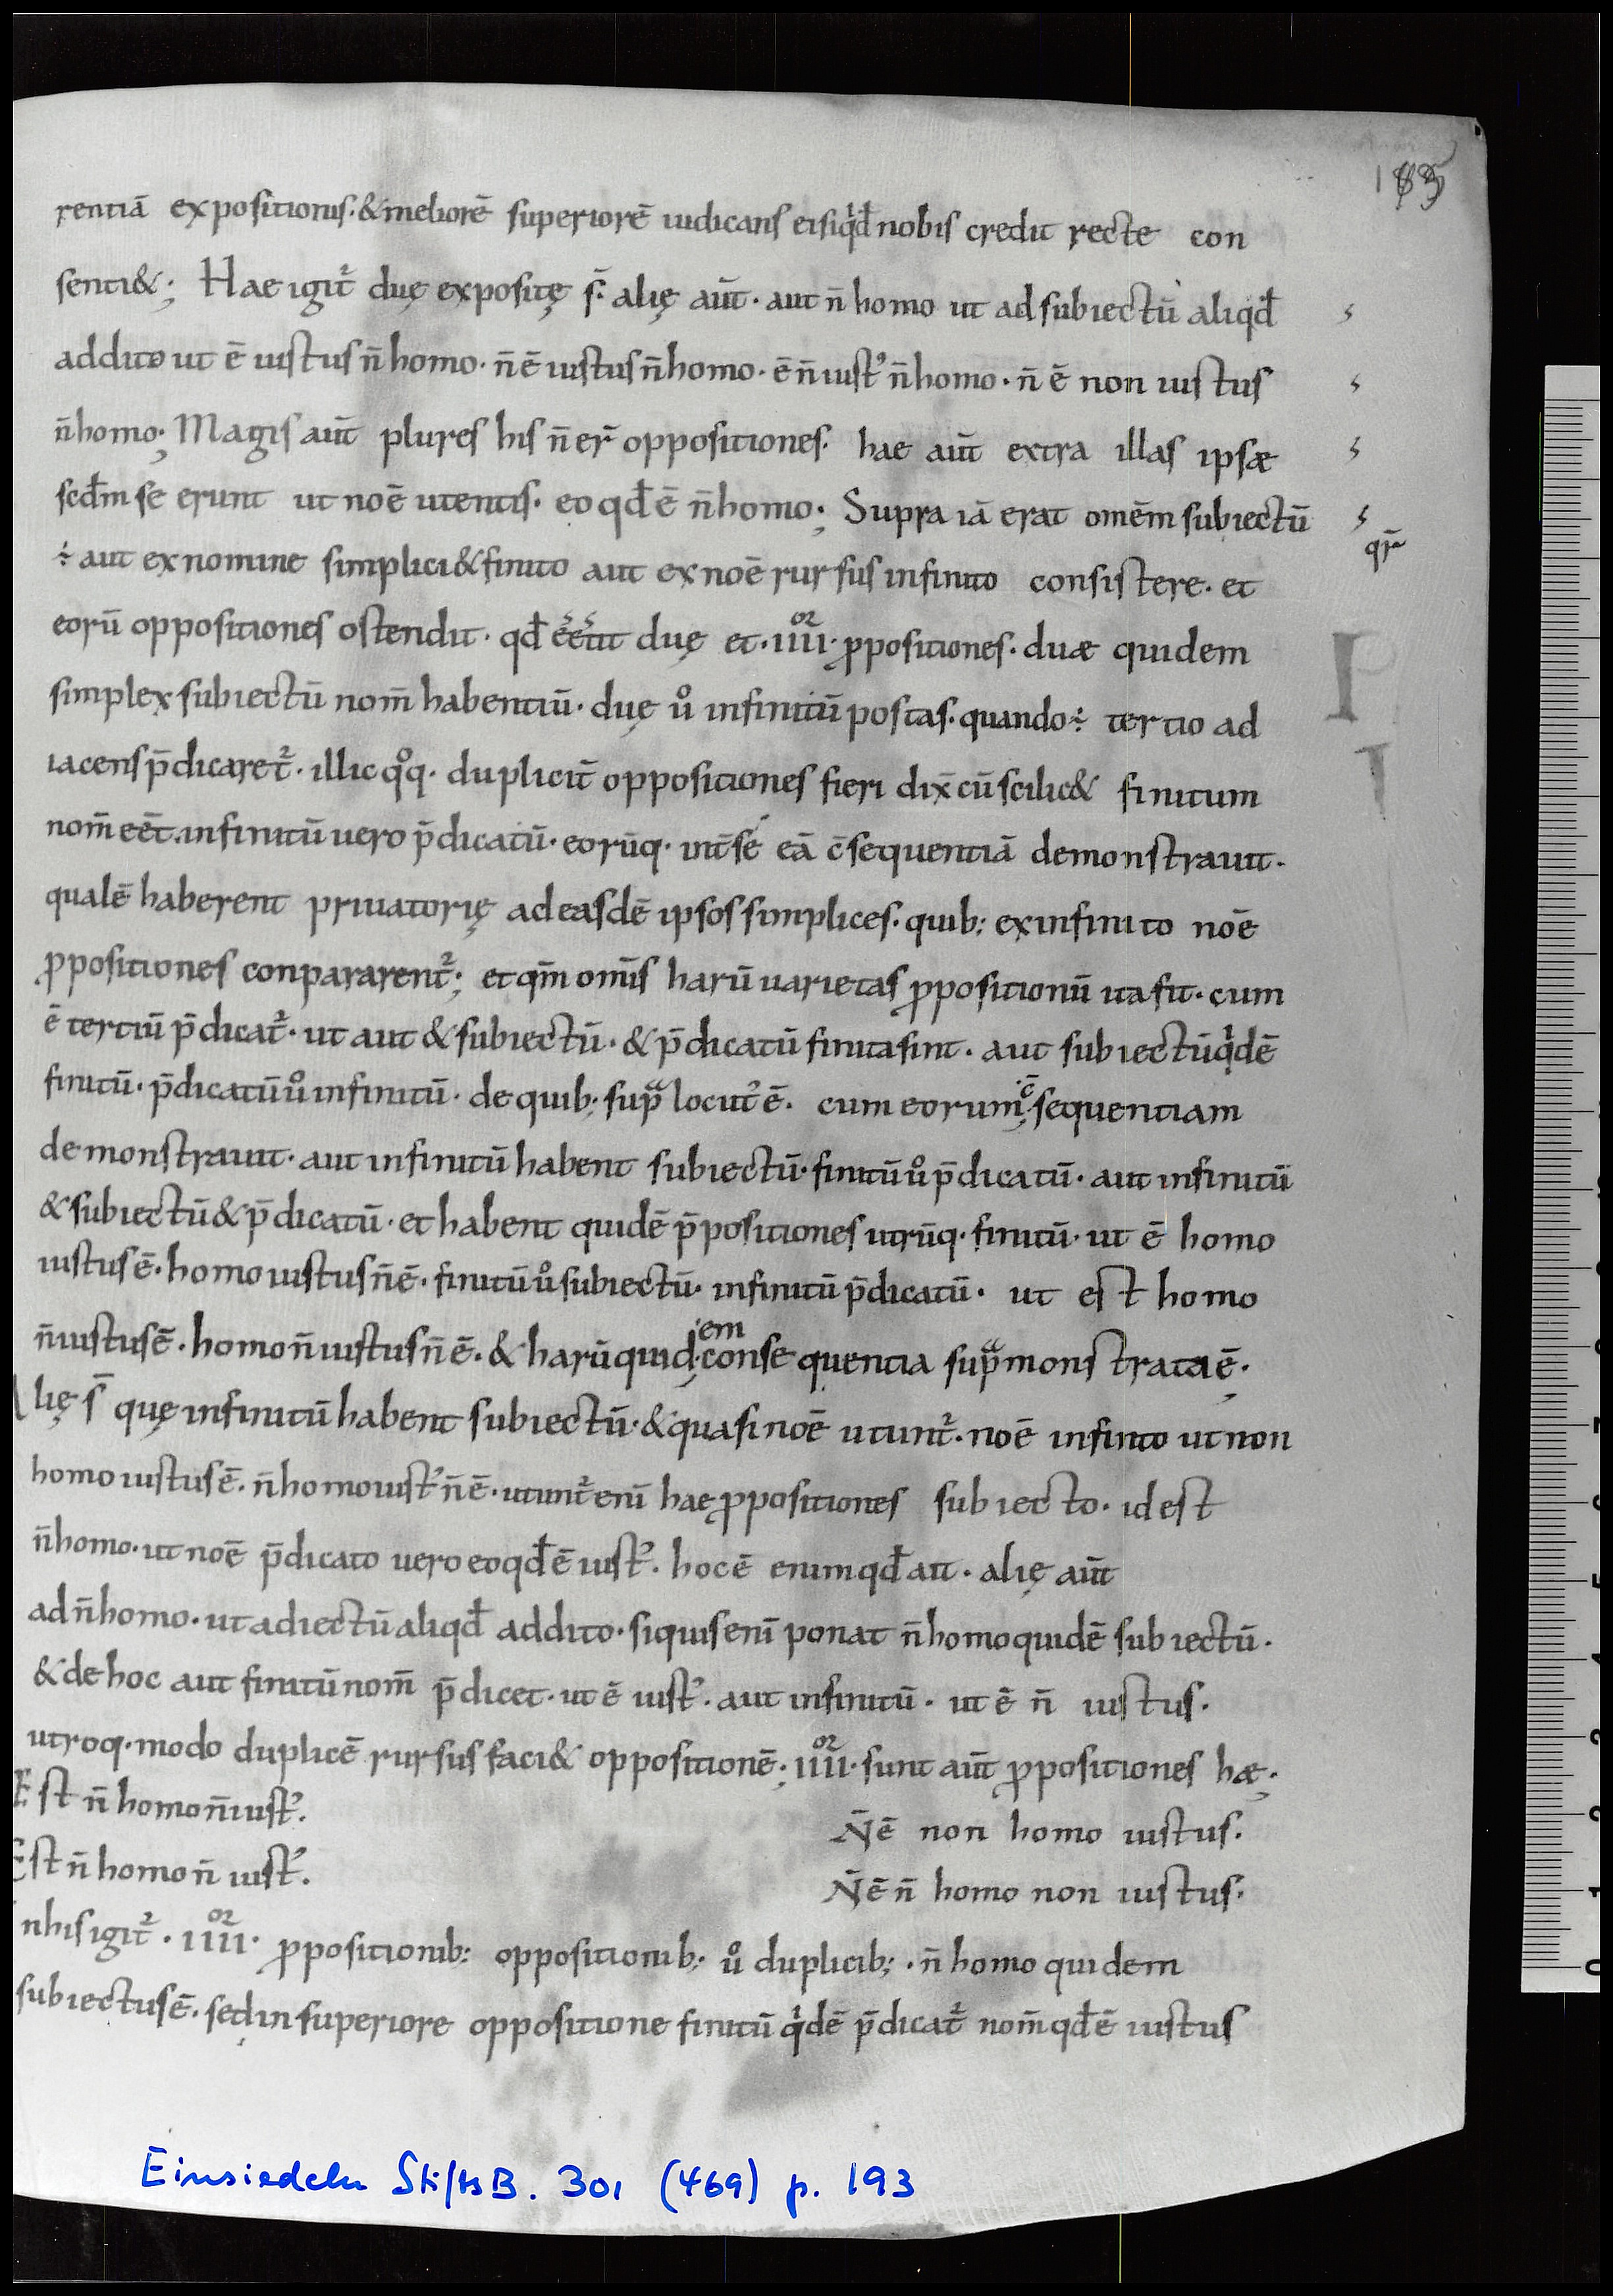 193
rentiā expositionis. & meliorē superiorē iudicans eisiq̇d nobis credit recte con
senti&; Hae igit᷑ duę expositę s̄. alię aūt. aut n̄ homo ut ad subiectū aliqđ
addito ut ē iustus n̄ homo. n̄ ē iustus n̄ homo. ē n̄ iust᾿ n̄ homo. n̄ ē non iustus
n̄ homo; Magis aūt plures his n̄ er̄ oppositiones. hae aūt extra illas ipsæ
scđm se erunt ut noē utentis. eo qđ ē n̄ homo; Supra iā erat omēm subiectū
qr̄
÷ aut ex nomine simplici & finito aut ex noē rursus infinito consistere. et
eorū oppositiones ostendit. qđ duę et. IIIIor. ꝓpositiones. duæ quidem
simplex subiectū nom̄ habentiū. duę ů infinitū postas. quando ÷ tertio ad
iacens p̄dicaret᷑. illic qͦq. duplicit̄ oppositiones fieri dix̄ cū scilic& finitum
nom̄ eēt. infinitū uero p̄dicatū. eorūq. int̄ se eā c̄sequentiā demonstrauit.
qualē haberent priuatorię ad easdē ipsos simplices. quib; ex infinito noē
ꝓpositiones conpararent᷑; et qm̄ om̄s harū uarietas ꝓpositionū ita fit. cum
ē tertiū p̄dicat᷑. ut aut & subiectū. & p̄dicatū finita sint. aut subiectū q̇dē
finitū. p̄dicatū ů infinitū. de quib; supᷓ locut᾿ ē. cum eorum c̄sequentiam
demonstrauit. aut infinitū habent subiectū. finitū ů p̄dicatū. aut infinitū
& subiectū & p̄dicatū. et habent quidē p̄positiones utrūq. finitū. ut ē homo
iustus ē. homo iustus n̄ ē. finitū ů subiectū. infinitū p̄dicatū. ut est homo
n̄ iustus ē. homo n̄ iustus n̄ ē. & harū quidem consequentia supᷓ monstrata ē.
Alię s̄ quę infinitū habent subiectū. & quasi noē utunt᷑. noē infinto ut non
homo iustus ē. n̄ homo iust᾿ n̄ ē. utunt᷑ enī hae ꝓpositiones subiecto. id est
n̄ homo. ut noē p̄dicato uero eo qđ ē iust᾿. hoc ē enim qđ ait. alię aūt
ad n̄ homo. ut adiectū aliqđ addito. siquis enī ponat n̄ homo quidē subiectū.
& de hoc aut finitū nom̄ p̄dicet. ut ē iust᾿. aut infinitū. ut ē n̄ iustus.
utroq. modo duplicē rursus faci& oppositionē; IIIIor. sunt aūt ꝓpositiones hæ.
Est n̄ homo n̄ iust᾿. N̄ ē non homo iustus.
Est n̄ homo n̄ iust᾿. N̄ ē n̄ homo non iustus.
In his igit᷑. IIIIor. ꝓpositionib; oppositionib; ů duplicib;. n̄ homo quidem
subiectus ē. sed in superiore oppositione finitū q̇dē p̄dicat᷑ nom̄ qđ ē iustus
Einsiedeln StiftsB. 301 (469) p. 193
0 1 2 3 4 5 6 7 8 9